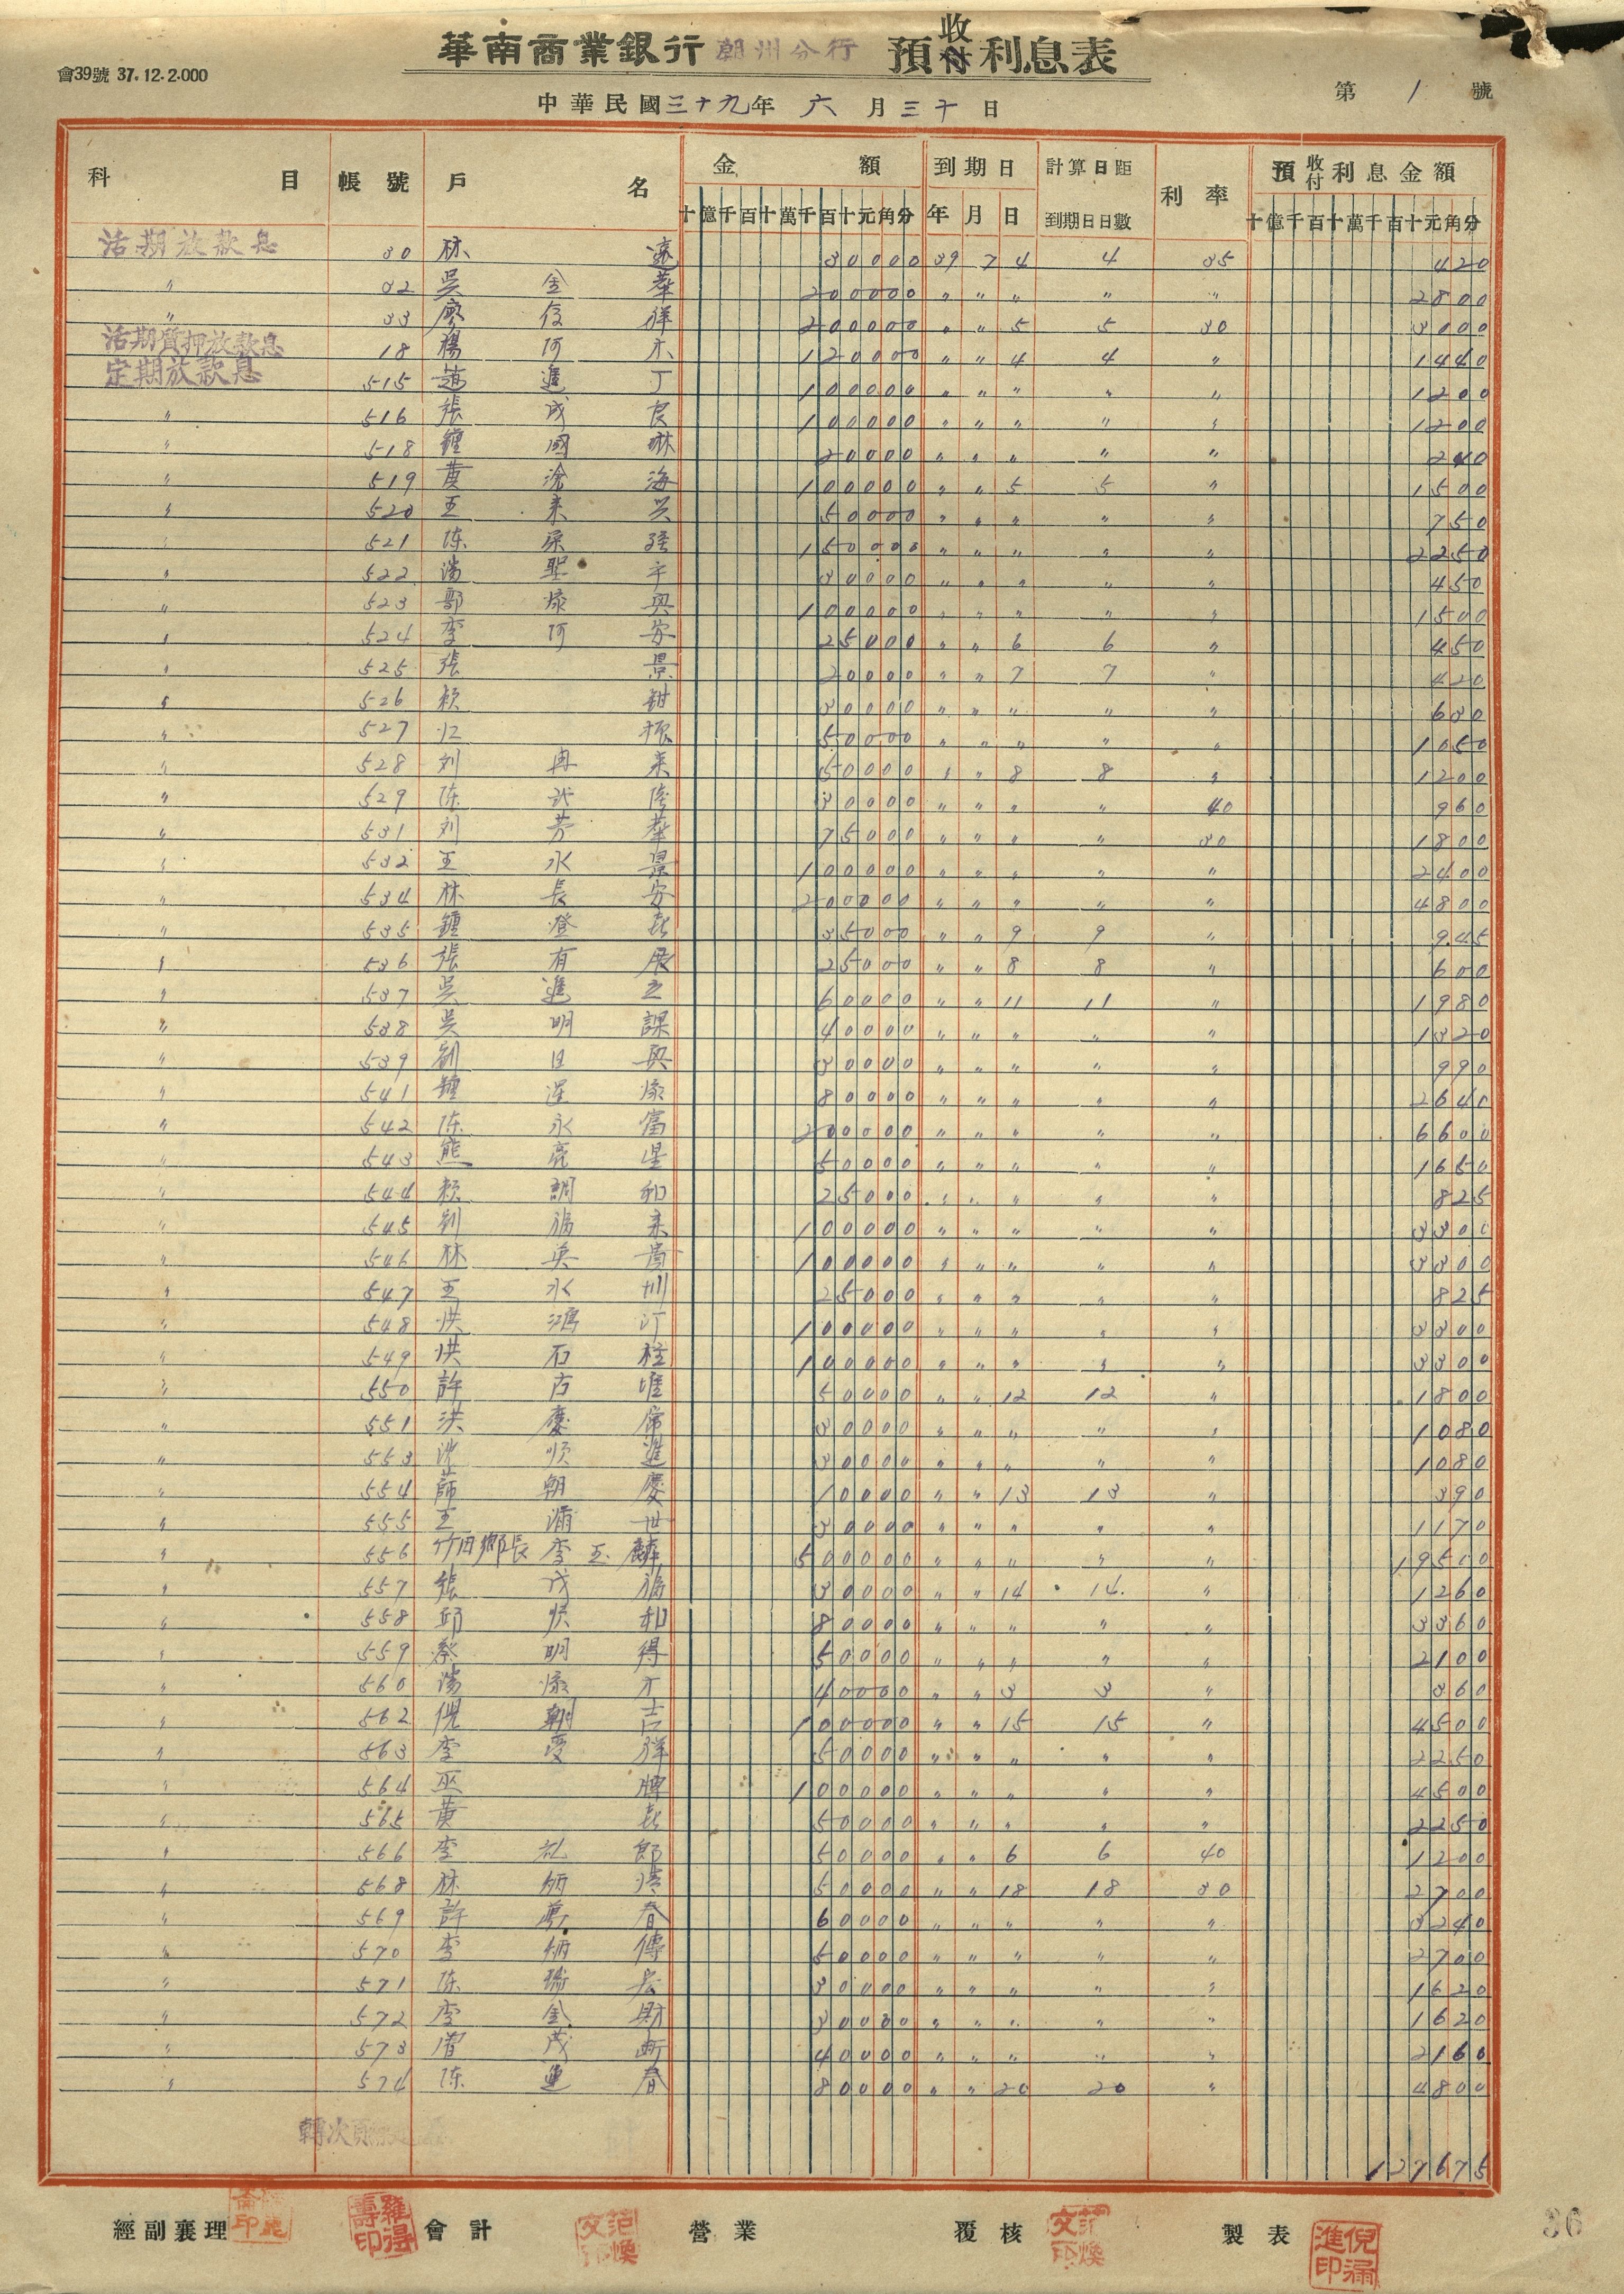 華南商業銀行 潮州分行 預收付利息表
會39號 37.12.2.000
中華民國三十九年 六 月 三十 日
第 1 號
科 目 帳號 戶 名 金 額 到期日 計算日距到期日日數 利率 預收付利息金額
十億千百十萬千百十元角分 年 月 日 十億千百十萬千百十元角分
活期放款息 30 林 遠 30000 39 7 4 4 35 420
〃 32 吳金華 200000 〃 〃 〃 〃 〃 2800
〃 33 廖 祥 200000 〃 〃 5 5 30 3000
活期質押放款息 18 楊阿木 120000 〃 〃 4 4 〃 1440
定期放款息 515 趙進丁 100000 〃 〃 〃 〃 〃 1200
〃 516 張成良 100000 〃 〃 〃 〃 〃 1200
〃 518 鍾國琳 20000 〃 〃 〃 〃 〃 240
〃 519 黃滄海 100000 〃 〃 5 5 〃 1500
〃 520 王來興 50000 〃 〃 〃 〃 〃 750
521 陈 150000 〃 〃 〃 〃 〃 2250
〃 522 湯聖 30000 〃 〃 〃 〃 〃 450
〃 523 郭 興 100000 〃 〃 〃 〃 〃 1500
〃 524 李阿安 25000 〃 〃 6 6 〃 450
〃 525 張 景 20000 〃 〃 7 7 〃 420
〃 526 賴 鉗 30000 〃 〃 〃 〃 〃 630
〃 527 江 振 50000 〃 〃 〃 〃 〃 1050
〃 528 刘再来 50000 〃 〃 8 8 〃 1200
〃 529 陈武 30000 〃 〃 〃 〃 40 960
〃 531 刘芳華 75000 〃 〃 〃 〃 30 1800
〃 532 王水景 100000 〃 〃 〃 〃 〃 2400
〃 534 林長安 200000 〃 〃 〃 〃 〃 4800
〃 535 鍾登 35000 〃 〃 9 9 〃 945
〃 536 張有展 25000 〃 〃 8 8 〃 600
〃 537 吳進 60000 〃 〃 11 11 〃 1980
〃 538 吳明謀 40000 〃 〃 〃 〃 〃 1320
〃 539 劉日興 30000 〃 〃 〃 〃 〃 990
〃 541 鍾 80000 〃 〃 〃 〃 〃 2640
〃 542 陈永富 200000 〃 〃 〃 〃 〃 6600
〃 543 熊 星 50000 〃 〃 〃 〃 〃 1650
〃 544 賴調和 25000 〃 〃 〃 〃 〃 825
〃 545 劉福来 100000 〃 〃 〃 〃 〃 3300
〃 546 林英貴 100000 〃 〃 〃 〃 〃 3300
〃 547 王水圳 25000 〃 〃 〃 〃 〃 825
〃 548 洪鴻汀 100000 〃 〃 〃 〃 〃 3300
〃 549 洪石柱 100000 〃 〃 〃 〃 〃 3300
〃 550 許 堆 50000 〃 〃 12 12 〃 1800
〃 551 洪慶 30000 〃 〃 〃 〃 〃 1080
〃 553 沈順進 30000 〃 〃 〃 〃 〃 1080
〃 554 薛朝慶 10000 〃 〃 13 13 〃 390
〃 555 王滿世 30000 〃 〃 〃 〃 〃 1170
〃 556 竹田鄉長李玉麟 500000 〃 〃 〃 〃 〃 19500
〃 557 張戊福 30000 〃 〃 14 14 〃 1260
〃 558 邱順和 80000 〃 〃 〃 〃 〃 3360
〃 559 蔡明得 50000 〃 〃 〃 〃 〃 2100
〃 560 湯 才 40000 〃 〃 3 3 〃 360
〃 562 倪朝吉 100000 〃 〃 15 15 〃 4500
〃 563 李 祥 50000 〃 〃 〃 〃 〃 2250
〃 564 巫 牌 100000 〃 〃 〃 〃 〃 4500
〃 565 黃 50000 〃 〃 〃 〃 〃 2250
〃 566 李 郎 50000 〃 〃 6 6 40 1200
〃 568 林炳 50000 〃 〃 18 18 30 2700
〃 569 許萬春 60000 〃 〃 〃 〃 〃 3240
〃 570 李炳傳 50000 〃 〃 〃 〃 〃 2700
〃 571 陈瑞 30000 〃 〃 〃 〃 〃 1620
〃 572 李金財 30000 〃 〃 〃 〃 〃 1620
〃 573 曾茂断 40000 〃 〃 〃 〃 〃 2160
〃 574 陈連春 80000 〃 〃 20 20 〃 4800
轉次頁
127675
經副襄理 會計 營業 覆核 製表
羅得壽印 范煥文印 范煥文印 倪漏進印
36